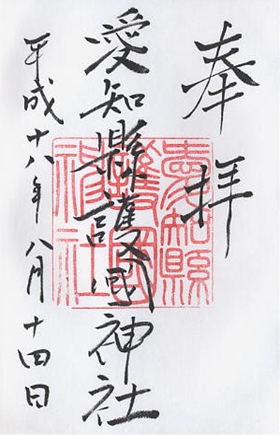 奉拝
愛知縣護國神社
平成十八年八月十四日
愛知縣
護國
神社